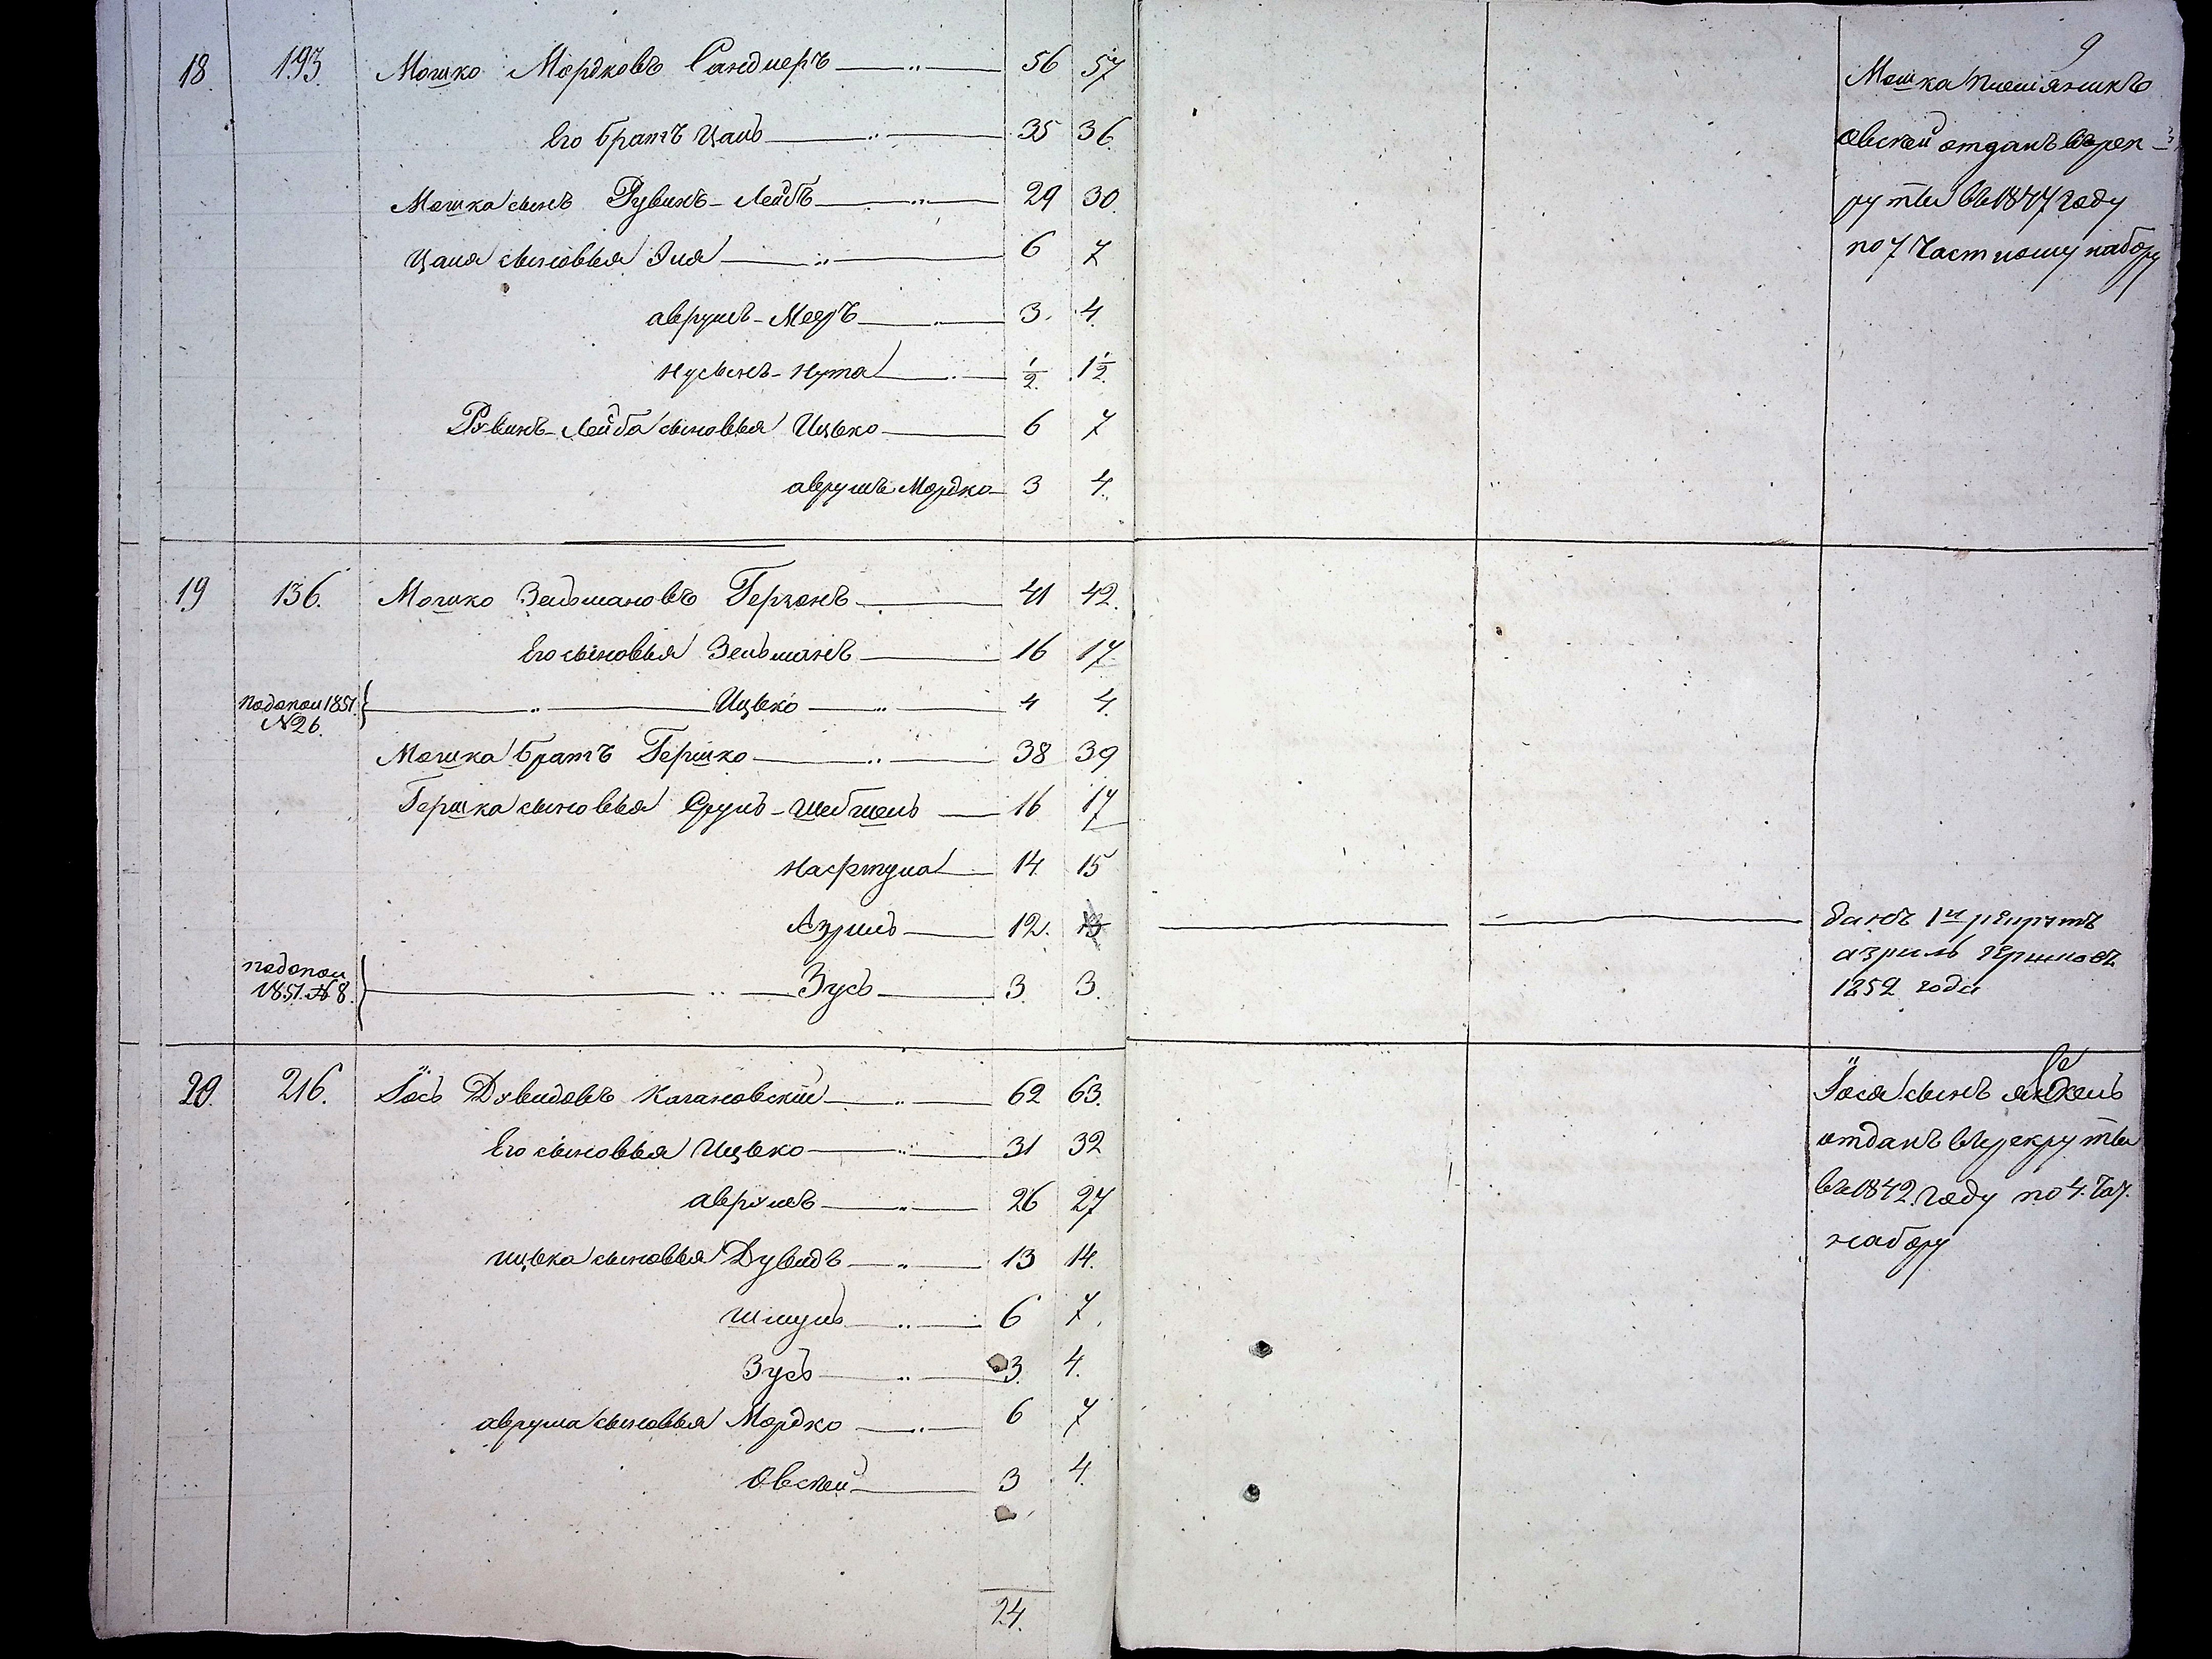 9
18. 193. Мошко Мордковъ Сандлеръ 56 57
Его братъ Цаль 35 36.
Мошка сынъ Рувинъ-Лейбъ 29 30.
Цаля сыновья Эля 6 7
Аврумъ-Мееръ 3. 4.
Нусынъ-Нута ½. 1½.
Рувинъ-Лейба сыновья Ицько 6 7
Аврумъ Мордко 3 4.
Мошка племянникъ
Овсѣй отданъ въ рек-
руты въ 1847 году
по 7 Частному набору
19 136. Мошко Зельмановъ Герчонъ 41 42.
Его сыновья Зельманъ 16 17.
по допол 1851. №26. Ицько 4 4.
Мошка братъ Гершко 38 39
Гершка сыновья Сруль-Шебшель 16 17
Нафтула 14. 15
Азриль 12. 13
по допол 1851. №8. Зусь 3. 3.
данъ 1й рекрутъ
азриль гершковъ
1852 года
20. 216. Іось Дувидовъ Кагановскій 62 63.
Его сыновья Ицько 31 32
Аврумъ 26 27
Ицька сыновья Дувидъ 13 14.
Шмуль 6 7.
Зусь 3. 4.
Аврума сыновья Мордко 6 7
Овсѣй 3 4.
Іося сынъ Янкель
отданъ въ рекруты
въ 1842 году по 4. Час.
набору
24.